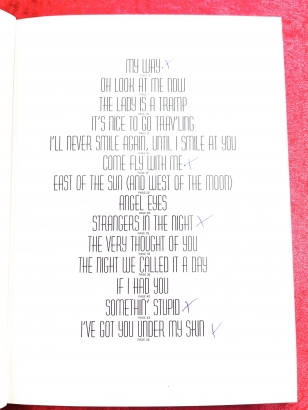 MY WAY x
OH LOOK AT ME NOW
THE LADY IS A TRAMP
IT'S NICE TO GO TRAV'LING
I'LL NEVER SMILE AGAIN, UNTIL I SMILE AT YOU
COME FLY WITH ME x
EAST OF THE SUN (AND WEST OF THE MOON)
ANGEL EYES
STRANGERS IN THE NIGHT x
THE VERY THOUGHT OF YOU
THE NIGHT WE CALLED IT A DAY
IF I HAD YOU
SOMETHIN' STUPID x
I'VE GOT YOU UNDER MY SKIN x